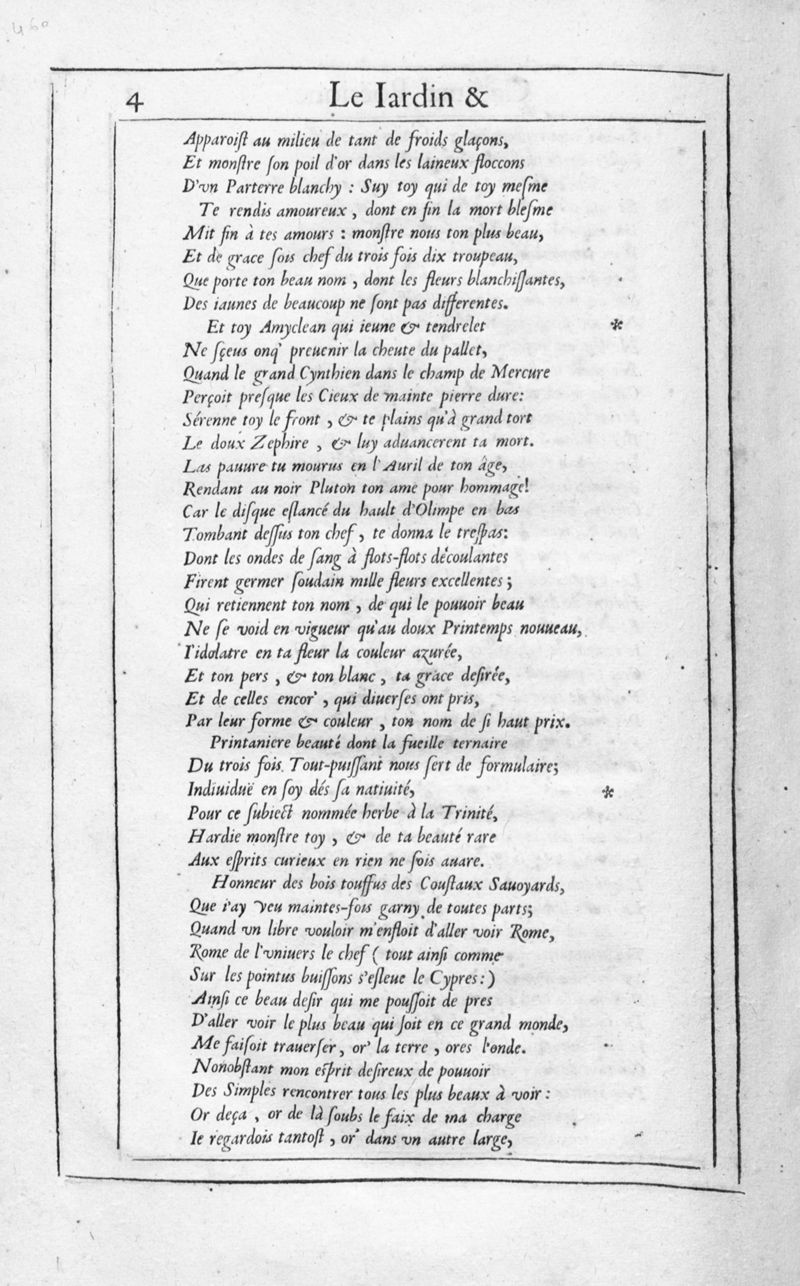 460
4 Le Iardin &
Apparoiſt au milieu de tant de froids glaçons,
Et monſtre ſon poil d'or dans les laineux floccons
D'vn Parterre blanchy : Suy toy qui de toy meſme
Te rendis amoureux , dont en fin la mort bleſme
Mit fin à tes amours : monſtre nous ton plus beau,
Et de grace ſois chef du trois fois dix troupeau,
Que porte ton beau nom , dont les fleurs blanchiſſantes,
Des iaunes de beaucoup ne ſont pas differentes.
Et toy Amyclean qui ieune & tendrelet *
Ne ſçeus onq' preuenir la cheute du pallet,
Quand le grand Cynthien dans le champ de Mercure
Perçoit preſque les Cieux de mainte pierre dure:
Sérenne toy le front , & te plains qu'à grand tort
Le doux Zephire , & luy aduancerent ta mort.
Las pauure tu mourus en l'Auril de ton âge,
Rendant au noir Pluton ton ame pour hommage!
Car le diſque eſlancé du hault d'Olimpe en bas
Tombant deſſus ton chef, te donna le treſpas:
Dont les ondes de ſang à flots-flots découlantes
Firent germer ſoudain mille fleurs excellentes ;
Qui retiennent ton nom , de qui le pouuoir beau
Ne ſe void en vigueur qu'au doux Printemps nouueau,
I'idolatre en ta fleur la couleur azurée,
Et ton pers , & ton blanc , ta grace deſirée,
Et de celles encor' , qui diuerſes ont pris,
Par leur forme & couleur , ton nom de ſi haut prix.
Printaniere beauté dont la fueille ternaire
Du trois fois Tout-puiſſant nous ſert de formulaire;
Indiuiduë en ſoy dés ſa natiuité, *
Pour ce ſubiect nommée herbe à la Trinité,
Hardie monſtre toy , & de ta beauté rare
Aux eſprits curieux en rien ne ſois auare.
Honneur des bois touffus des Couſtaux Sauoyards,
Que i'ay veu maintes-fois garny de toutes parts;
Quand vn libre vouloir m'enfloit d'aller voir Rome,
Rome de l'vniuers le chef ( tout ainſi comme
Sur les pointus buiſſons s'eſleue le Cypres : )
Ainſi ce beau deſir qui me pouſſoit de pres
D'aller voir le plus beau qui ſoit en ce grand monde,
Me faiſoit trauerſer, or' la terre , ores l'onde.
Nonobſtant mon eſprit deſireux de pouuoir
Des Simples rencontrer tous les plus beaux à voir :
Or deça , or de là ſoubs le faix de ma charge
Ie regardois tantoſt , or' dans vn autre large,